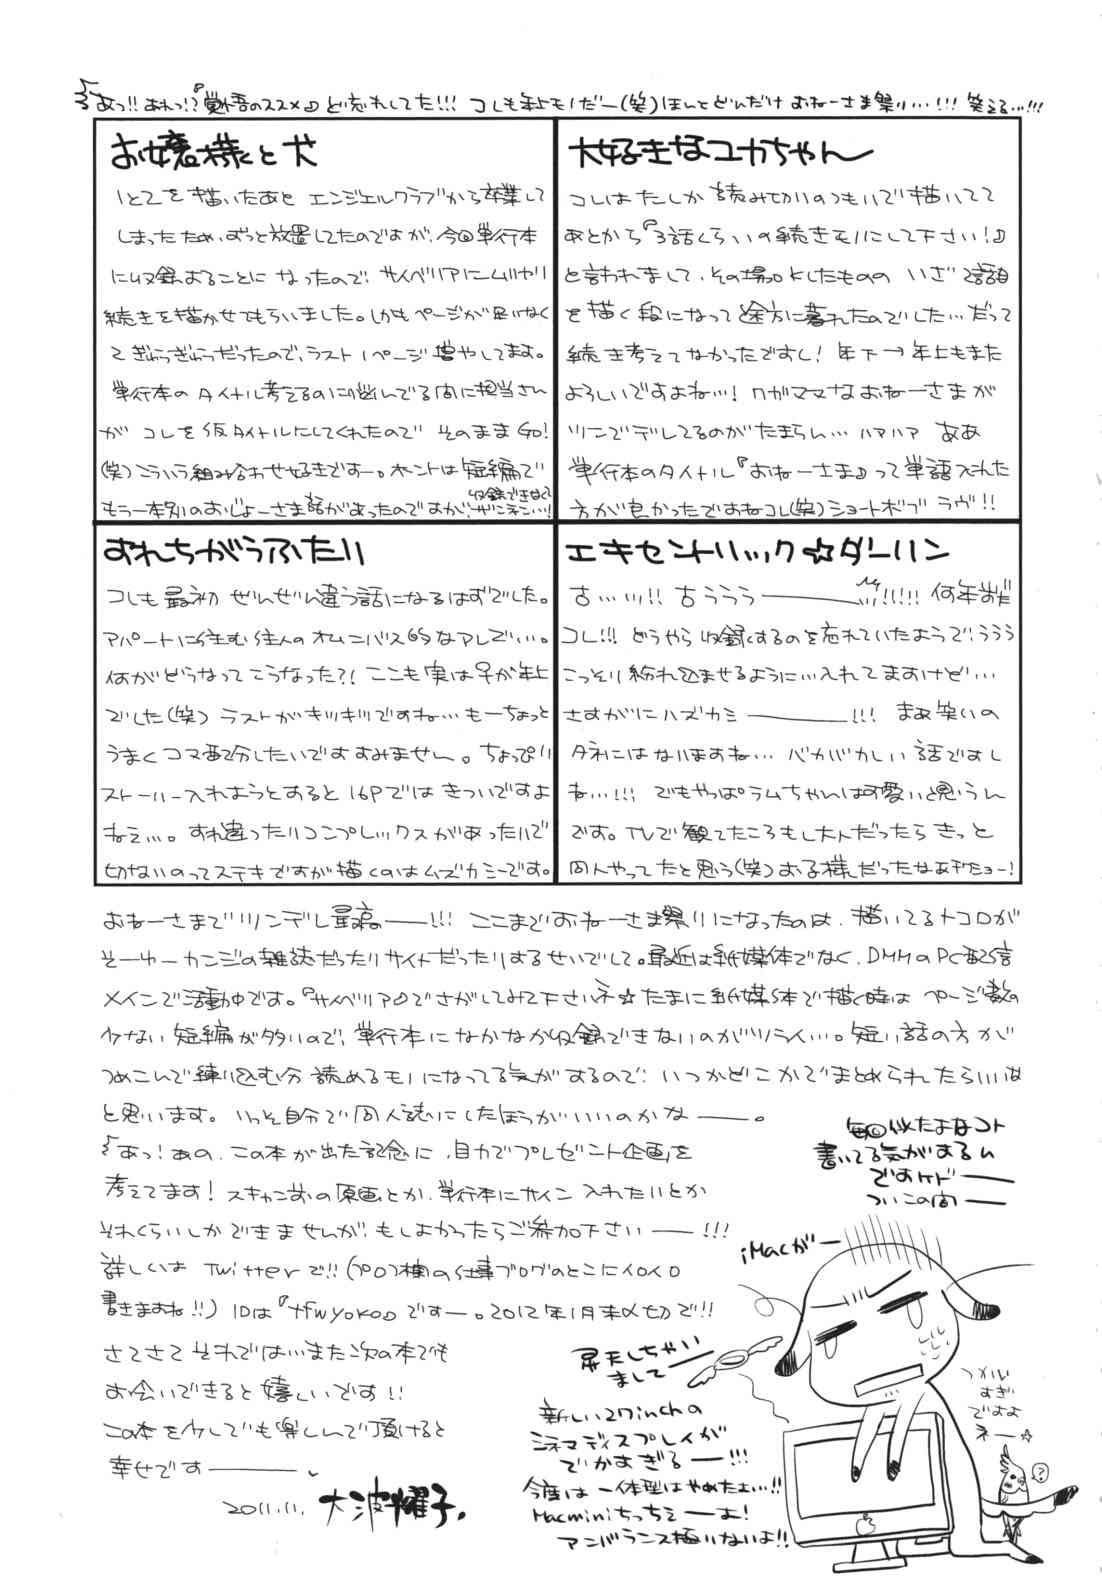 あっ!!あれっ!?『覚悟のススメ』ど忘れしてた!!!コレも年上モノだー(笑)ほんとどんだけおねーさま祭り…!!!笑える…!!!
お嬢様と犬
1と2を描いたあとエンジェルクラブから卒業して
しまったため、ずっと放置してたのですが、今回単行本
に収録することになったので、サイベリアにムリヤリ
続きを描かせてもらいました。しかもページが足りなく
てぎゅうぎゅうだったので、ラスト1ページ増やしてます。
単行本のタイトル考えるのに悩んでる間に担当さん
がコレを仮タイトルにしてくれたのでそのままGO!
(笑)こういう組み合わせ好きですー。ホントは短編で
もう一本別のおじょーさま話があったのですが、収録できなくてザンネン…!
大好きなユカちゃん
コレはたしか読み切りのつもりで描いてて
あとから『3話くらいの続きモノにして下さい!』
と言われまして、その場でOKしたものの いざ2話目
を描く段になって途方に暮れたのでした…だって
続き考えてなかったですし!年下→年上もまた
よろしいですよね…!ワガママなおねーさまが
ツンでデレてるのがたまらん…ハァハァ ああ
単行本のタイトル『おねーさま』って単語入れた
方が良かったですねコレ(笑)ショートボブラヴ!!
すれちがうふたり
コレも最初ぜんぜん違う話になるはずでした。
アパートに住む住人のオムニバス的なアレで…。
何がどうなってこうなった?!ここも実は♀が年上
でした(笑)ラストがキツキツですね…もーちょっと
うまくコマ配分したいですすみません。ちょっぴり
ストーリー入れようとすると16Pではきついですよ
ねぇ…。すれ違ったりコンプレックスがあったりで
切ないのってステキですが描くのはムズカシーです。
エキセントリック☆ダーリン
古…ッ!!古ううう――!!!!!何年前だ
コレ!!!どうやら収録するのを忘れていたようで、ううう
こっそり紛れ込ませるように…入れてますけど…
さすがにハズカシ――!!!まあ笑いの
タネにはなりますね…バカバカしい話ですし
ね…!!!でもやっぱラムちゃんは可愛いと思うん
です。TVで観てたころもし大人だったらきっと
同人やってたと思う(笑)お子様だったなあヂャヨー!
おねーさまでツンデレ最高――!!!ここまでおねーさま祭りになったのは、描いてるトコロが
そーゆーカンジの雑誌だったりサイトだったりするせいでして。最近は紙媒体でなく、DMMのPC配信
メインで活動中です。『サイベリア』でさがしてみて下さいネ☆たまに紙媒体で描く時はページ数の
少ない短編が多いので、単行本になかなか収録できないのがツライ…。短い話の方が
つめこんで練り込む分読めるモノになってる気がするので、いつかどこかでまとめられたらいいな
と思います。いっそ自分で同人誌にしたほうがいいのかな――。
あっ!あの、この本が出た記念に、自力でプレゼント企画を
考えてます!スキャン前の原画とか、単行本にサイン入れたりとか
それくらいしかできませんが、もしよかったらご参加下さい――!!!
詳しくは Twitterで!!(プロフ欄の仕事ブログのとこにイロイロ
書きますね!!)IDは『tfwyoko』ですー。2012年1月末〆切で!!
さてさてそれでは…また次の本でも
お会いできると嬉しいです!!
この本を少しでも楽しんで頂けると
幸せです――。
2011.11. 大波耀子.
毎回似たよなコト
書いてる気がするん
ですケド――
ついこの間――
iMacが――
昇天しちゃい
まして――
新しい27inchの
シネマディスプレイが
でかすぎる――!!!
今度は一体型はやめたよ…!!
Macminiちっちぇ――よ!
アンバランス極りないよ!!
つかい
すぎ
ですよ
ネー☆
?